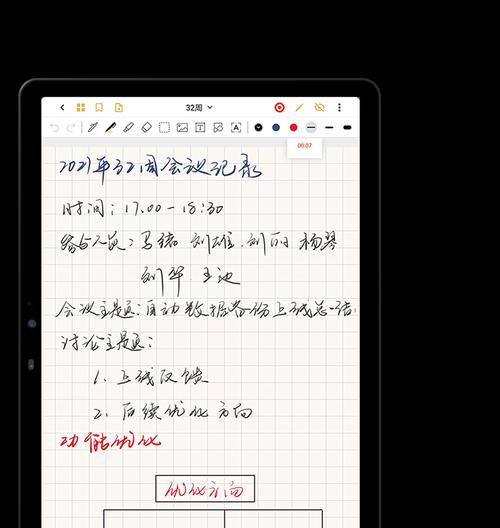 32周
00:07
2021年32周会议记录
时间：17:00-18:30
参会人员：马 刘雄、刘丽 杨琴
刘华 王池
会议主题：自动数据备份上线总结
讨论主题：
1. 上线反馈
2. 后续优化方向
功能优化
优化方向